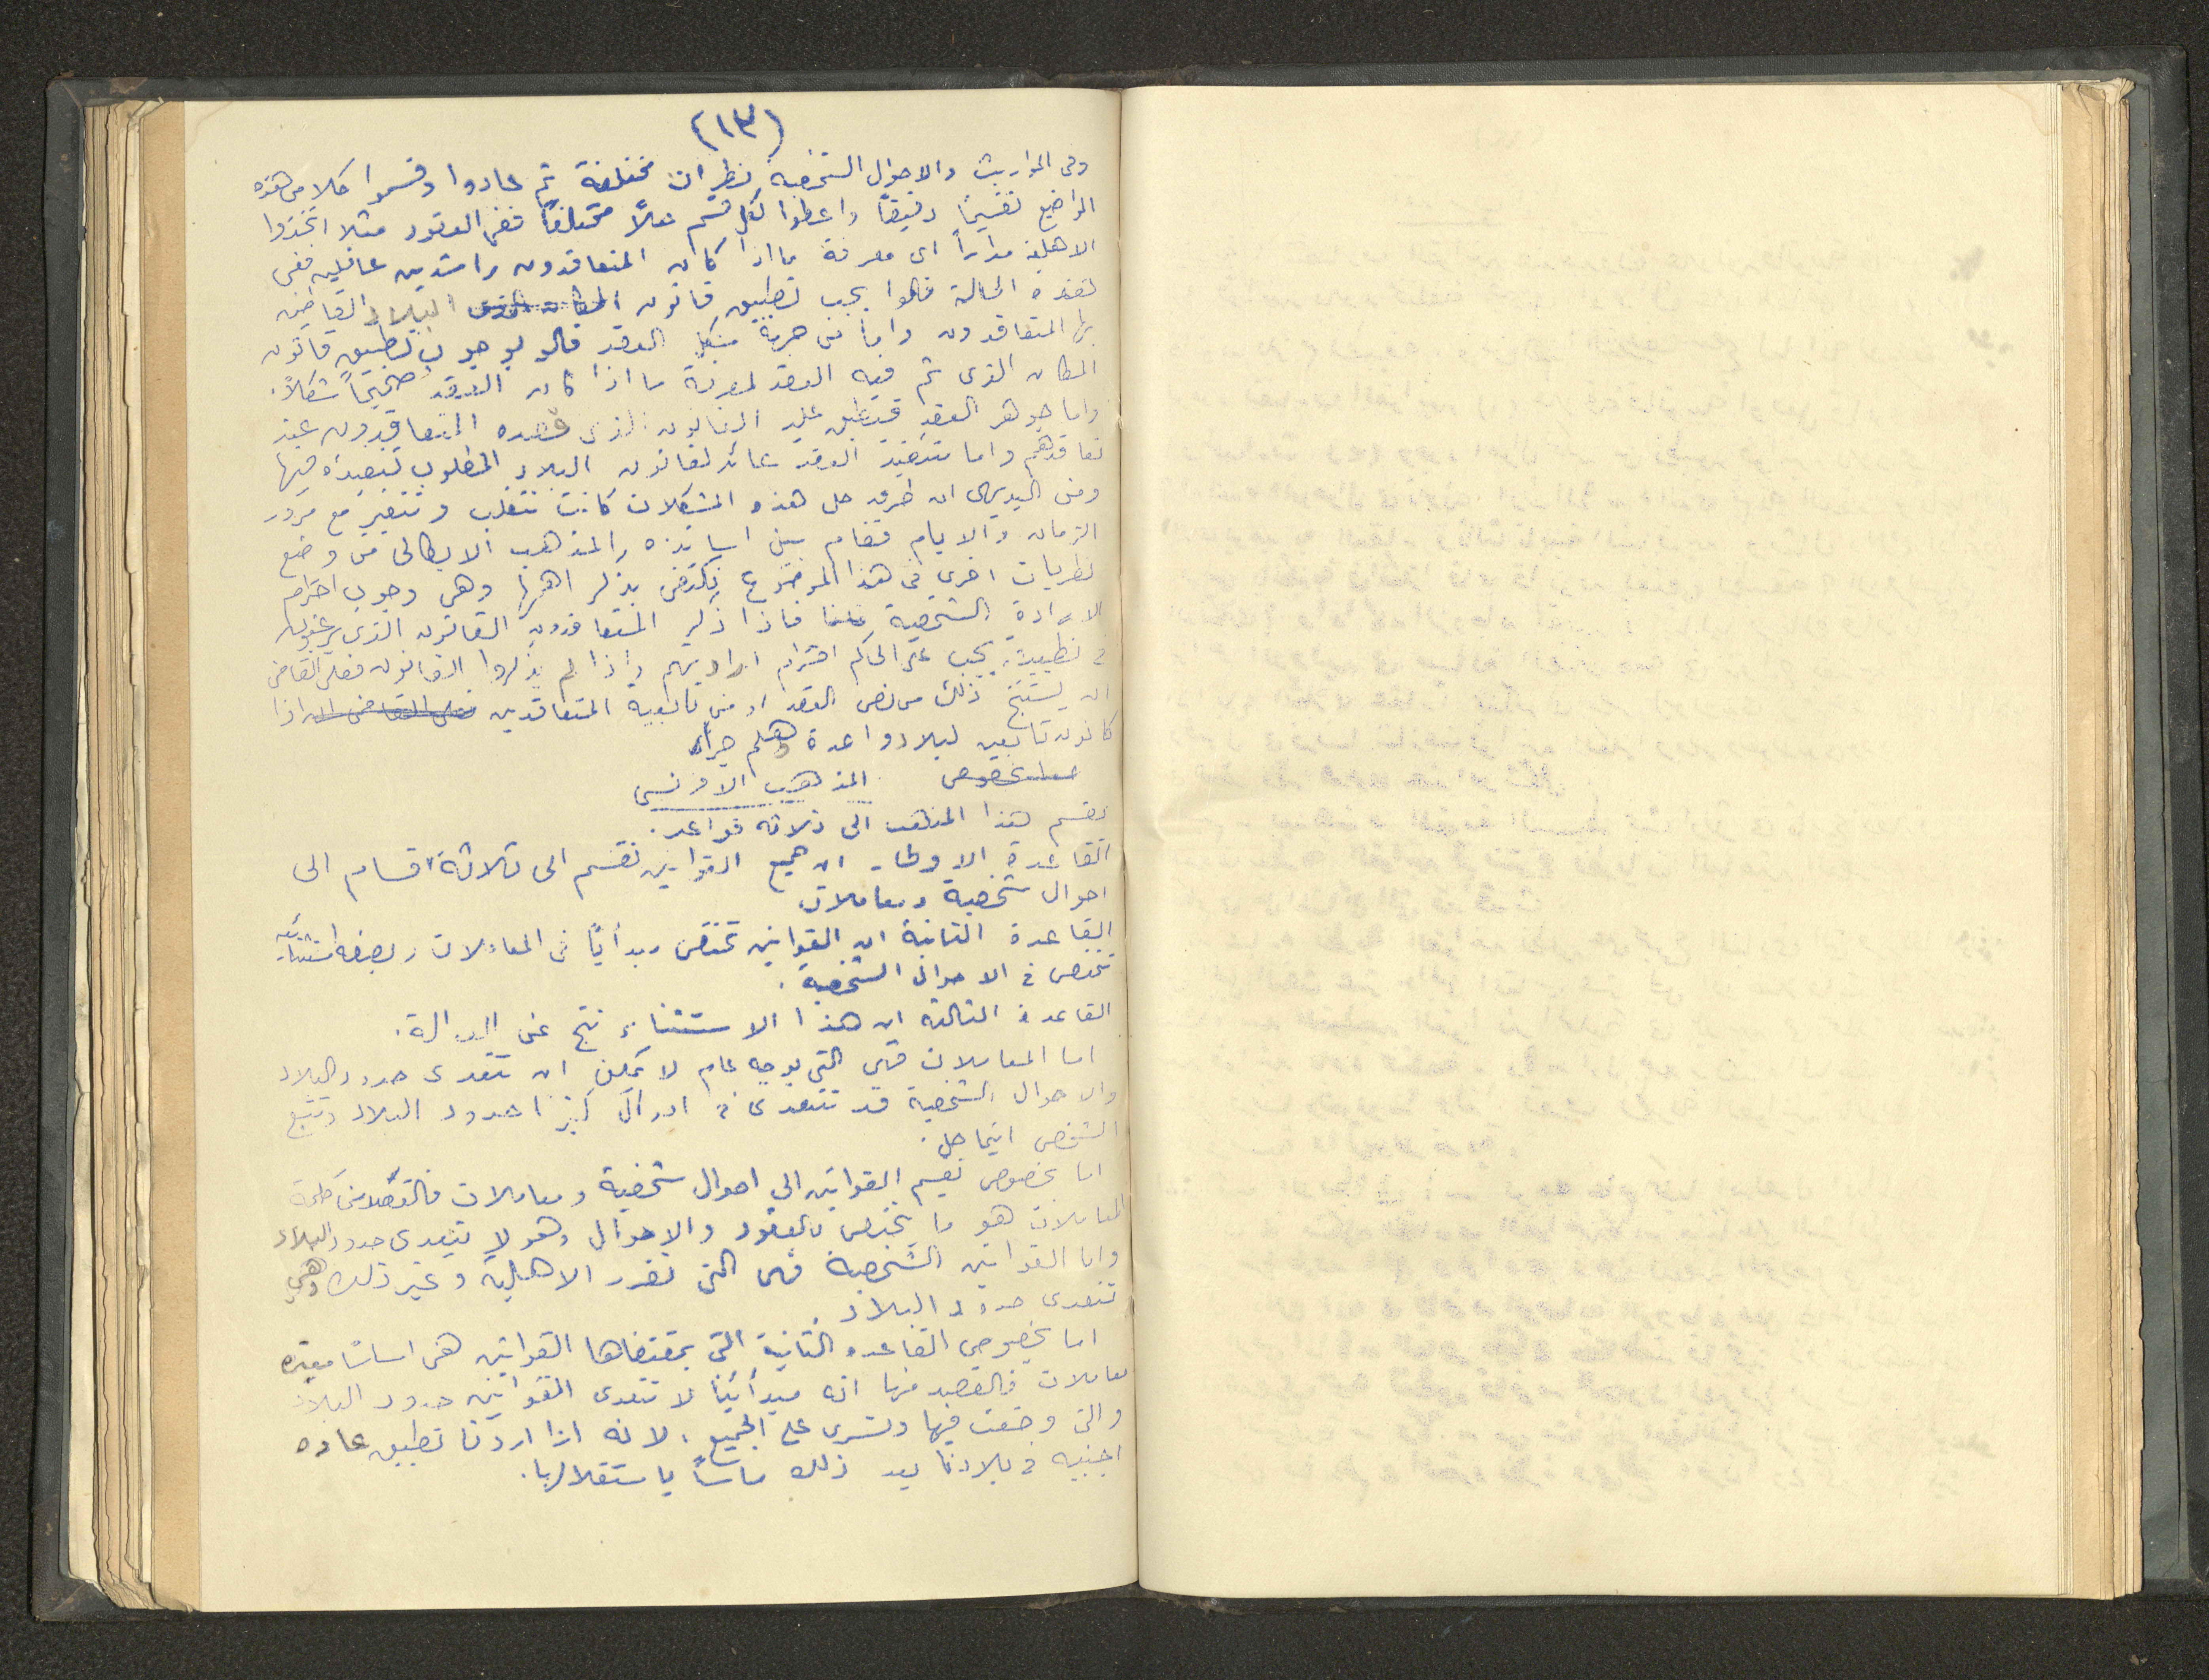 (١٣)
وفى المواريث والاحوال الشخصية نظريات مختلفة ثم عادوا وقسموا كلا من هذه
المواضيع تقسيماً دقيقاً واعطوا لكل قسم حلاً مختلفاً ففى العقود مثلا اتخذوا
الاهلية مداراً اى معرفة ما اذا كان المتعاقدون راشدين عاقلين ففى
هذه الحالة قالوا يجب تطبيق قانون البلاد القاطن
بها المتعاقدون واما من جهة شكل العقد قالو بوجوب تطبيق قانون
المكان الذى تم فيه العقد لمعرفة ما اذا كان العقد صحيحاً شكلاً.
واما جوهر العقد فيطبق عليه القانون الذى قصده المتعاقدون عند
تعاقدهم واما تنفيذ العقد عائد لقانون البلاد المطلوب تنفيذه فيها
ومن البديهى ان طرق حل هذه المشكلات كانت تتقلب وتتغير مع مرور
الزمان والايام فقام بين اساتذه المذهب الايطالى من وضع
نظريات اخرى فى هذا الموضوع نكتفى بذكر اهمها وهى وجوب احترام
الارادة الشخصية فاذا ذكر المتعاقدون القانون الذى يرغبون
فى تطبيقه يجب على الحاكم احترام ارادتهم واذا لم يذكروا القانون فعلى القاضى
ان يستنتج ذلك من نص العقد او من تابعية المتعاقدين فعلى القاضى ان اذا
كانون تابعين لبلاد واحدة وهلم جراً
اما بخصوص المذهب الافرنسى
يقسم هذا المذهب الى ثلاثه قواعد.
القاعدة الاولى - ان جميع القوانين تقسم الى ثلاثة اقسام الى
احوال شخصية ومعاملات
القاعدة الثانية ان القوانين تختص مبدأياً فى المعاملات وبصفه استثنائيه
تختص فى الاحوال الشخصية.
القاعدة الثالثة ان هذا الاستثناء نتج عن العدالة.
اما المعاملات فهى التى بوجه عام لا يمكن ان تتعدى حدود البلاد
والاحوال الشخصية قد تتعدى فى احوال كثيرا حدود البلاد وتتبع
الشخص اينما حل.
اما بخصوص تقسيم القوانين الى احوال شخصية ومعاملات فالقصد من كلمة
المعاملات هو ما يختص بالعقود والاحوال وهو لا يتعدى حدود البلاد
واما القوانين الشخصية فهى التى تقرر الاهلية وغير ذلك وهى
تتعدى حدود البلاد.
اما بخصوص القاعده الثانية التى بمقتضاها القوانين هى اساسًا معتبره
معاملات فالقصد منها انه مبدأيًا لا تتعدى القوانين حدود البلاد
والتى وضعت فيها وتسرى على الجميع. لانه اذا اردنا تطبيق عاده
اجنبيه فى بلادنا يعد ذلك ماساً باستقلالها.